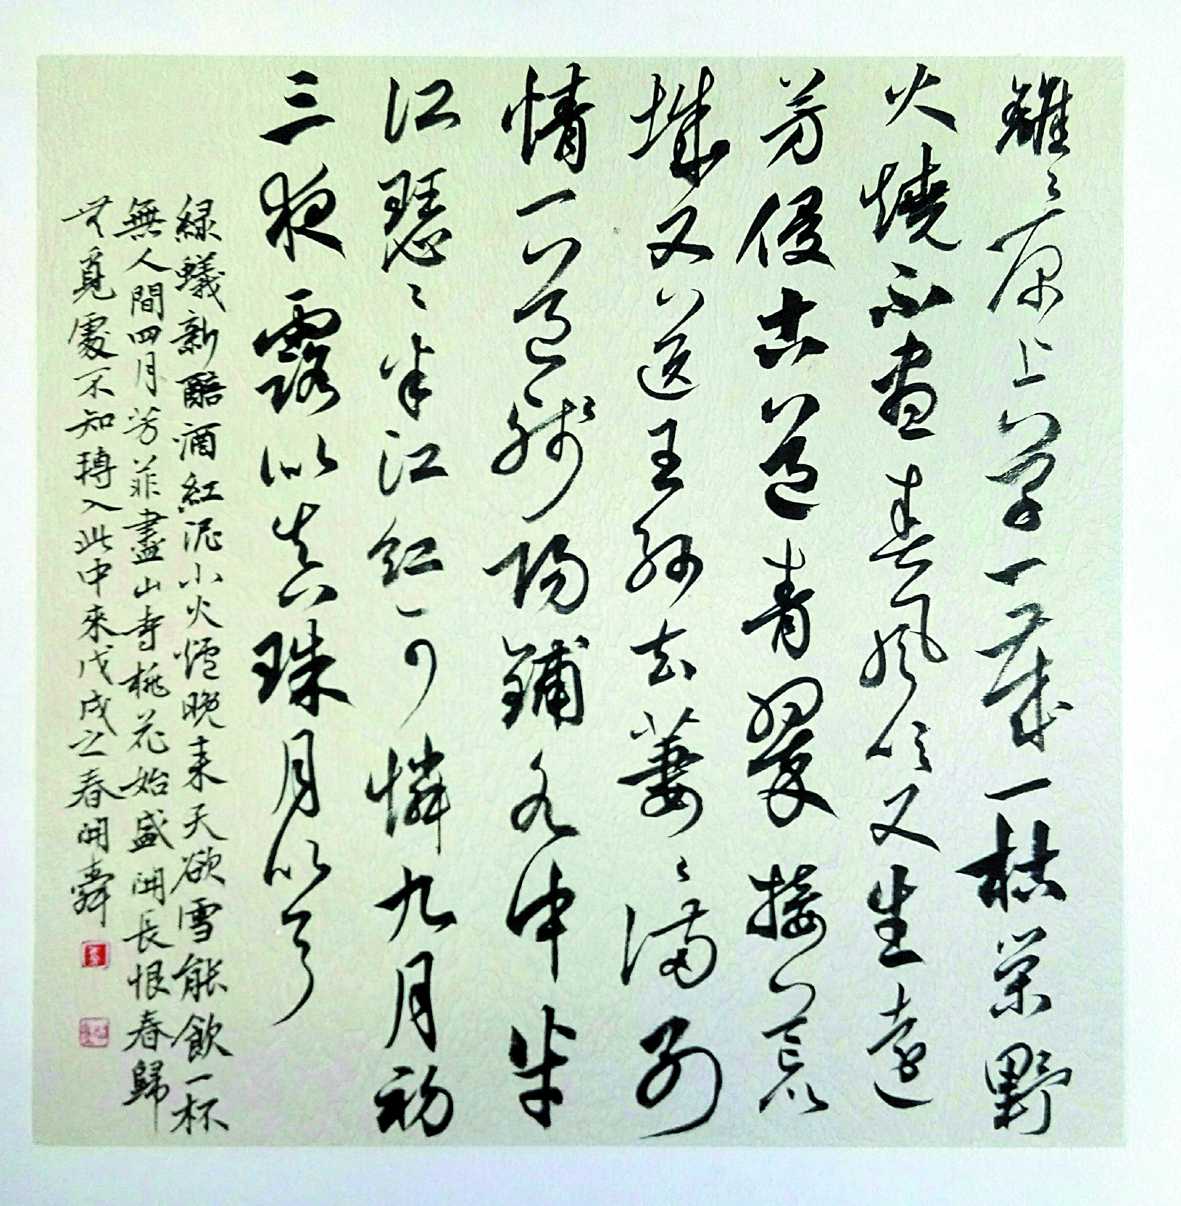 離々原上草一歲一枯榮野
火燒不盡春風吹又生遠
芳侵古道青翠接荒
城又送王孫去萋々滿別
情一道殘陽鋪水中半
江瑟々半江紅可憐九月初
三夜露似真珠月似弓
綠蟻新醅酒紅泥小火爐晚来天欲雪能飲一杯
無人間四月芳菲盡山寺桃花始盛開長恨春歸
无覓處不知轉入此中來戊戌之春開舜